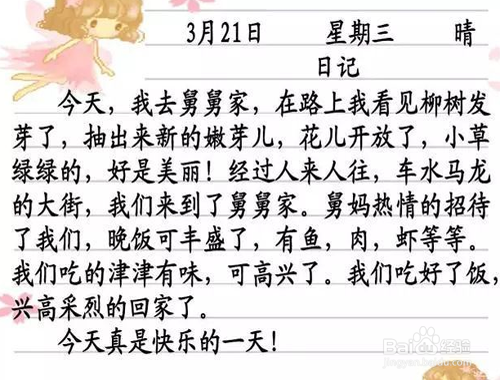 3月21日 星期三 晴
日记
今天，我去舅舅家，在路上我看见柳树发
芽了，抽出来新的嫩芽儿，花儿开放了，小草
绿绿的，好是美丽！经过人来人往，车水马龙
的大街，我们来到了舅舅家。舅妈热情的招待
了我们，晚饭可丰盛了，有鱼，肉，虾等等。
我们吃的津津有味，可高兴了。我们吃好了饭，
兴高采烈的回家了。
今天真是快乐的一天！
Baidu经验